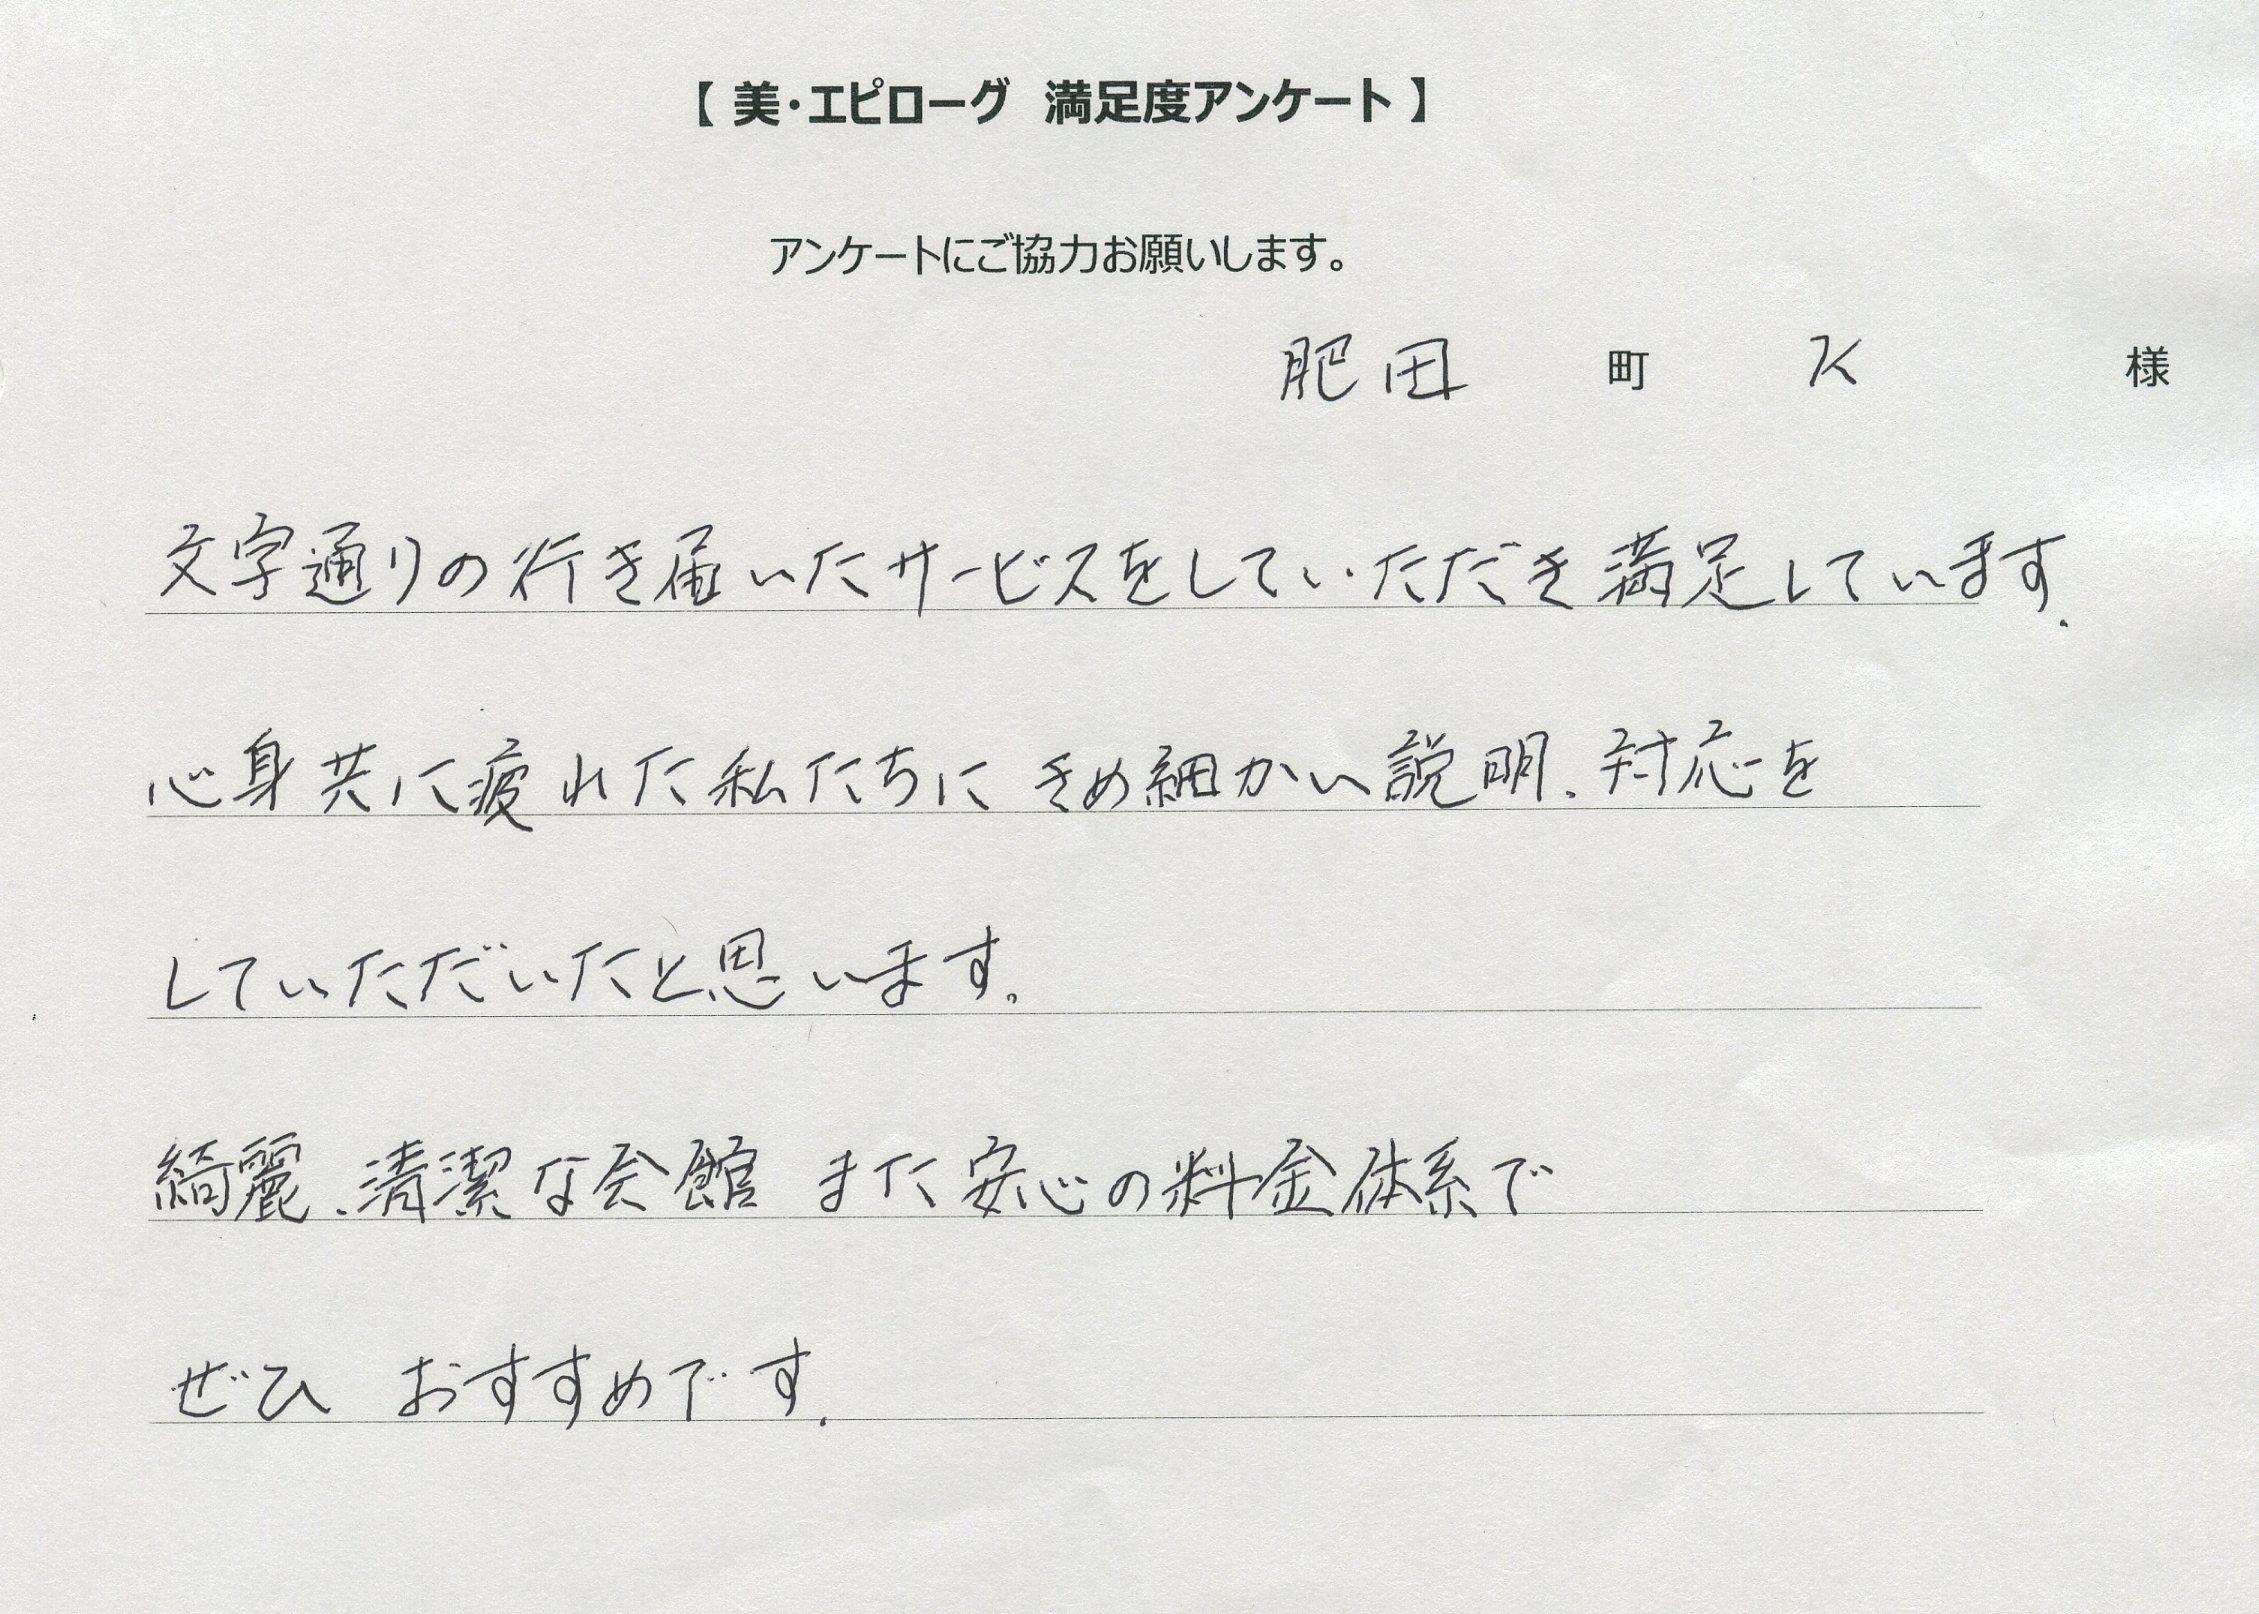 【 美・エピローグ　満足度アンケート 】
アンケートにご協力お願いします。
肥田 町 K 様
文字通りの行き届いたサービスをしていただき満足しています.
心身共に疲れた私たちに きめ細かい説明、対応を
していただいたと思います。
綺麗、清潔な会館 また安心の料金体系で
ぜひ おすすめです.